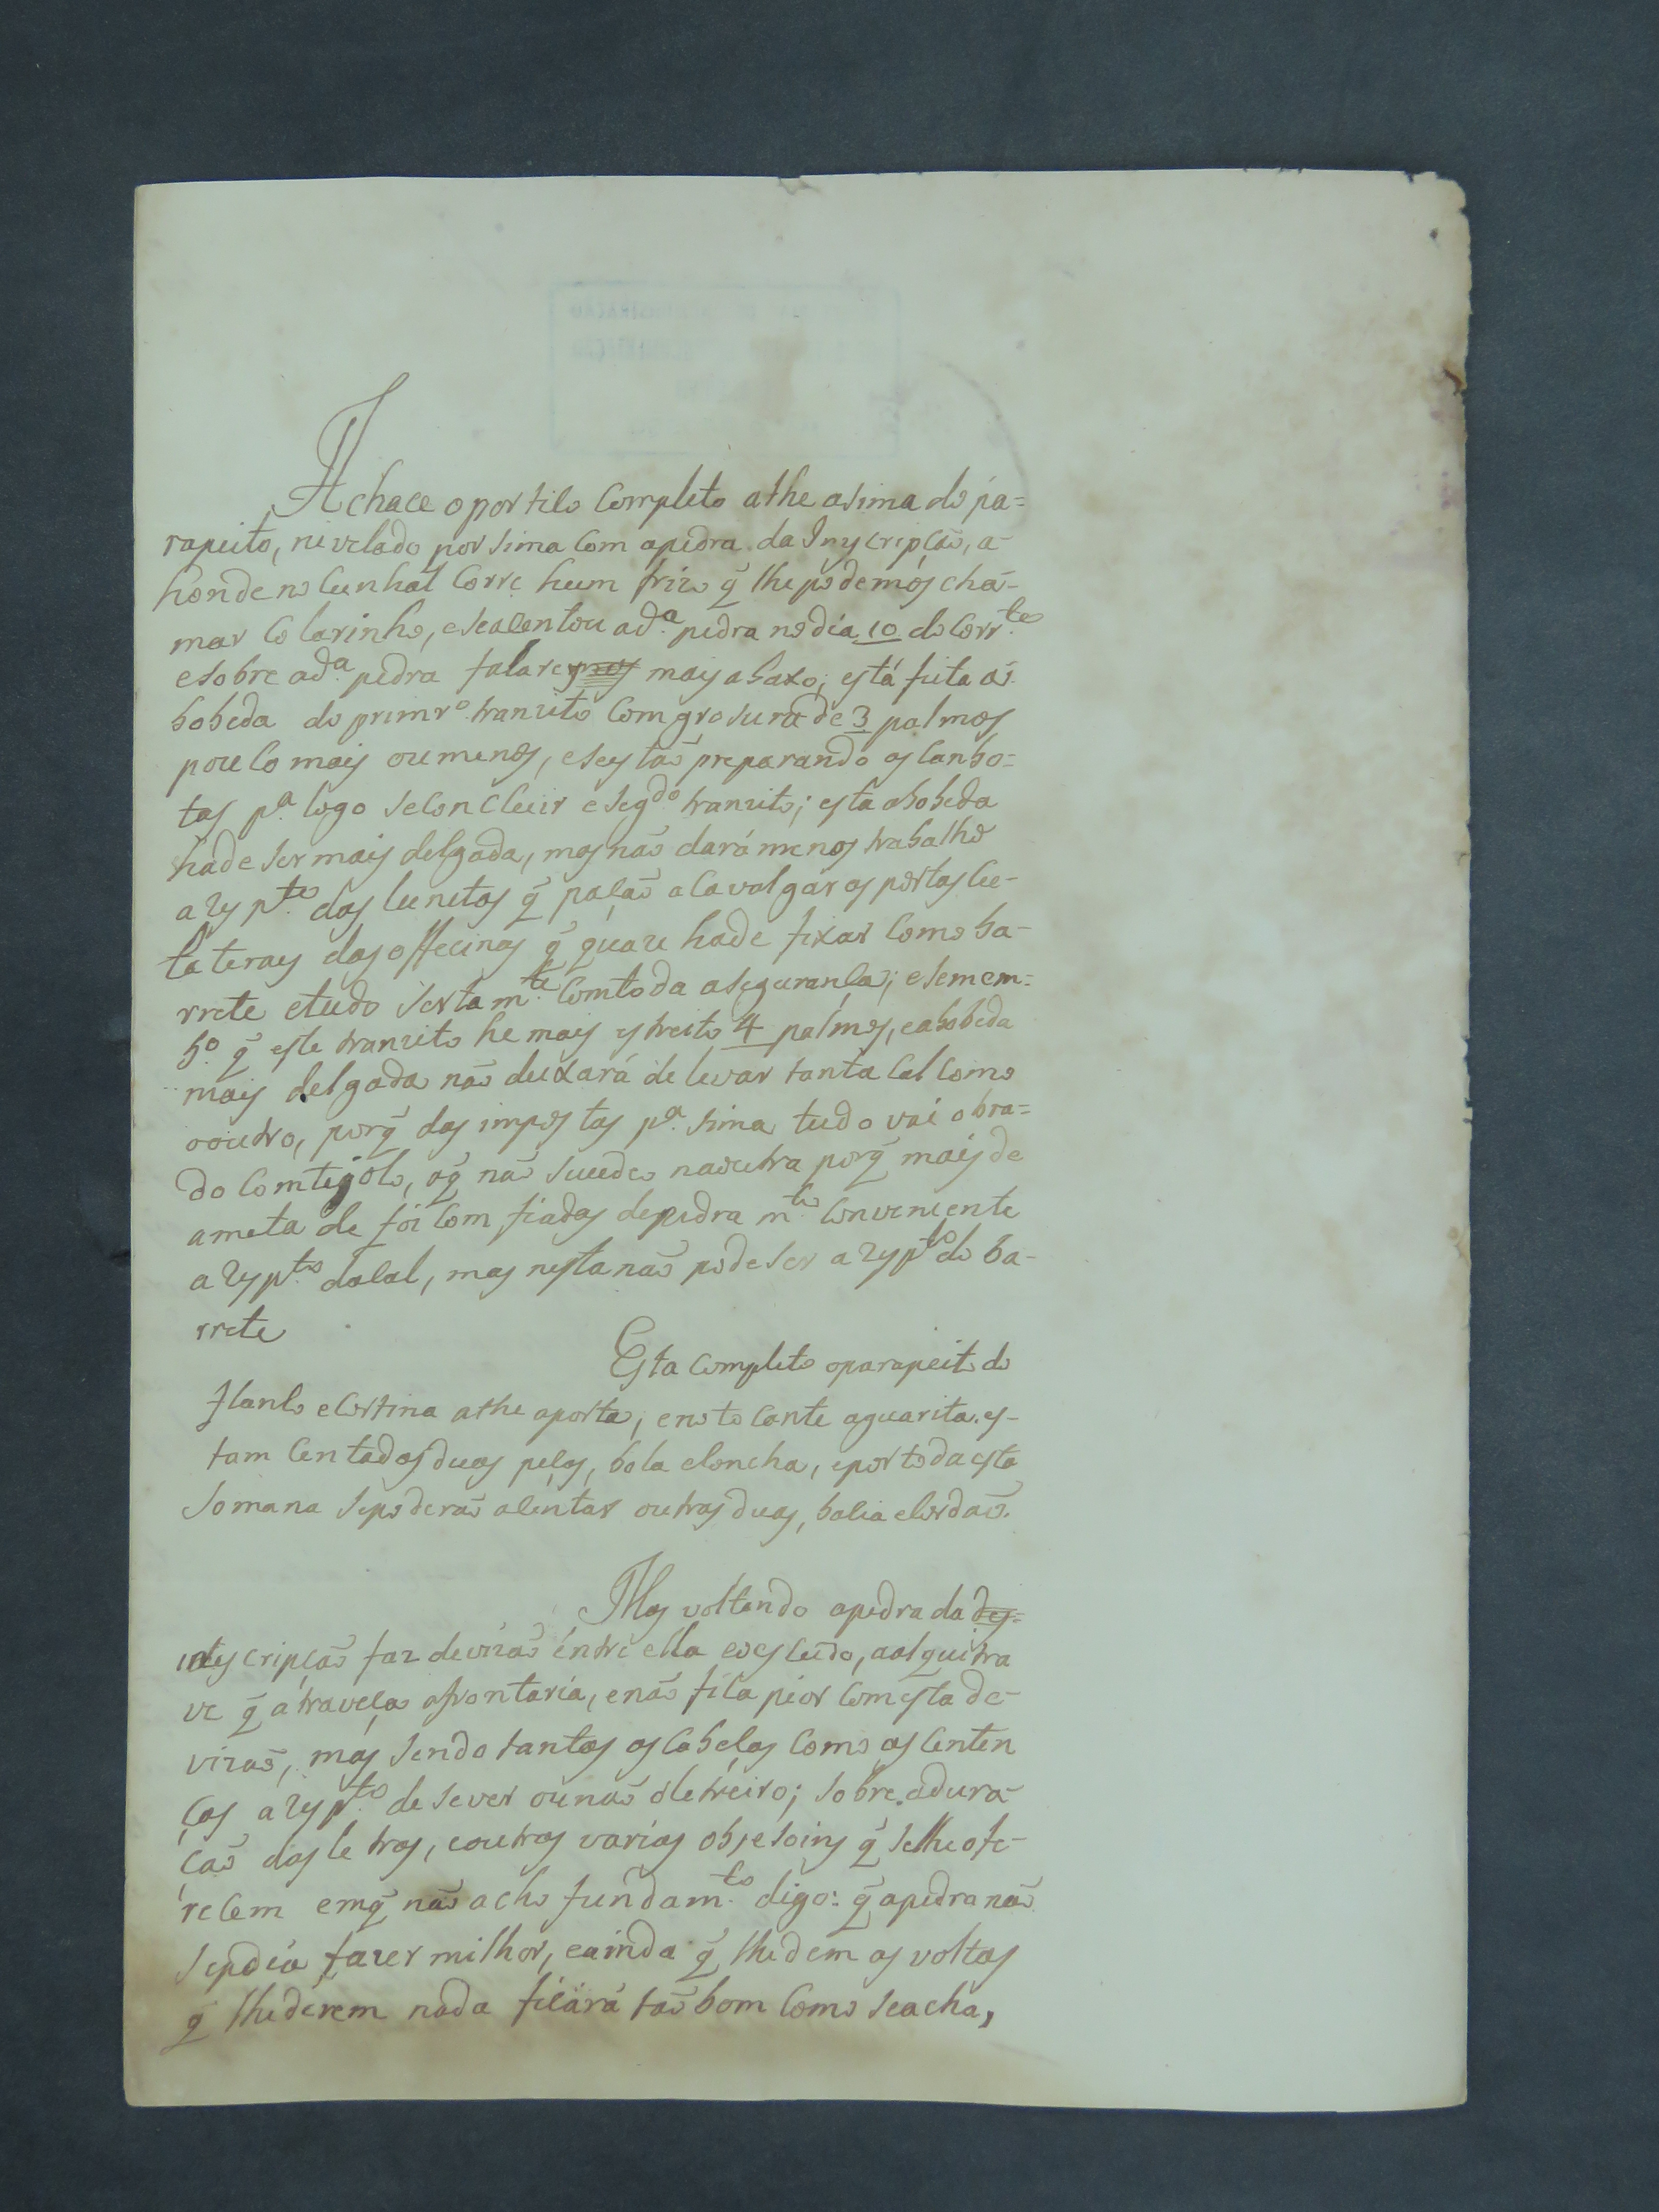 Achace o portilo Completo athe asima do pa=
rapeito, nivelado por sima Com apedra da Inscripcaõ, a-
honde no Cunhal Corre hum frizo q̃ lhe podemos cha-
mar Colarinho, eseacentou ad.ª pedra no dia 10 do Corr.te
esobre ad.ª pedra falarey mais abaxo; está feita a
bobeda do primr.º tranzito Com grosura de 3 palmos
pouCo mais ou menos, esestaõ preparando os Canbo=
tas p.ª logo seConCluir o seg.do tranzito; esta abobeda
hade ser mais delgada, mas naõ dará menos trabalho
a resp.to das lunetas q̃ paçaõ aCavalgar as portas Cu-
lateraes das offecinas q̃ quaze hade fixar Como ba-
rrete etudo sertam.te Comtoda aseguranÇa; esemem=
b.º q̃ este tranzito he mais estreito 4 palmos, eabobeda
mais delgada naõ deixará de levar tanta Cal Como
ooutro, porq̃ das impostas p.ª sima tudo vai obra=
do Comtigolo, oq̃ naõ suuede naoutra porq̃ mais de
ametade foi Com fiadas depedra m.to Conveniente
a resp.to daCal, mas nesta naõ podeser a resp.to do ba-
rrete
Esta Completo oparapeito do
flanCo eCortina athe aporta, eno toCante aguarita es-
tam Centadas duas peças, bola eConcha, epor toda esta
somana sepoderaõ aCentar outras duas, baCia eCordaõ.
Mas voltando apedra da des=
inscripçaõ faz devizaõ entre ella eoesCudo, aalquitra
ve q̃ atraveça afrontaria, enaõ fiCa pior Comesta de-
vizaõ, mas sendo tantas as Cabeças Como as Centen
ças a resp.to de sever ounaõ oletreiro; sobre adura-
çaõ das letras, eoutras varias objesoins q̃ selhe ofe-
reCem emq̃ naõ acho fundam.to digo: q̃ apedra naõ
sepodia fazer milhor, eainda q̃ lhedem as voltas
q̃ lhederem nada ficará taõ bom Como seacha,